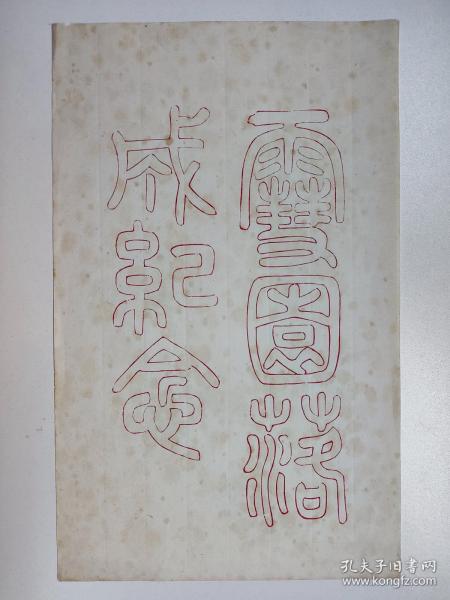 雪園落
成紀念
孔夫子旧书网
www.kongfz.com